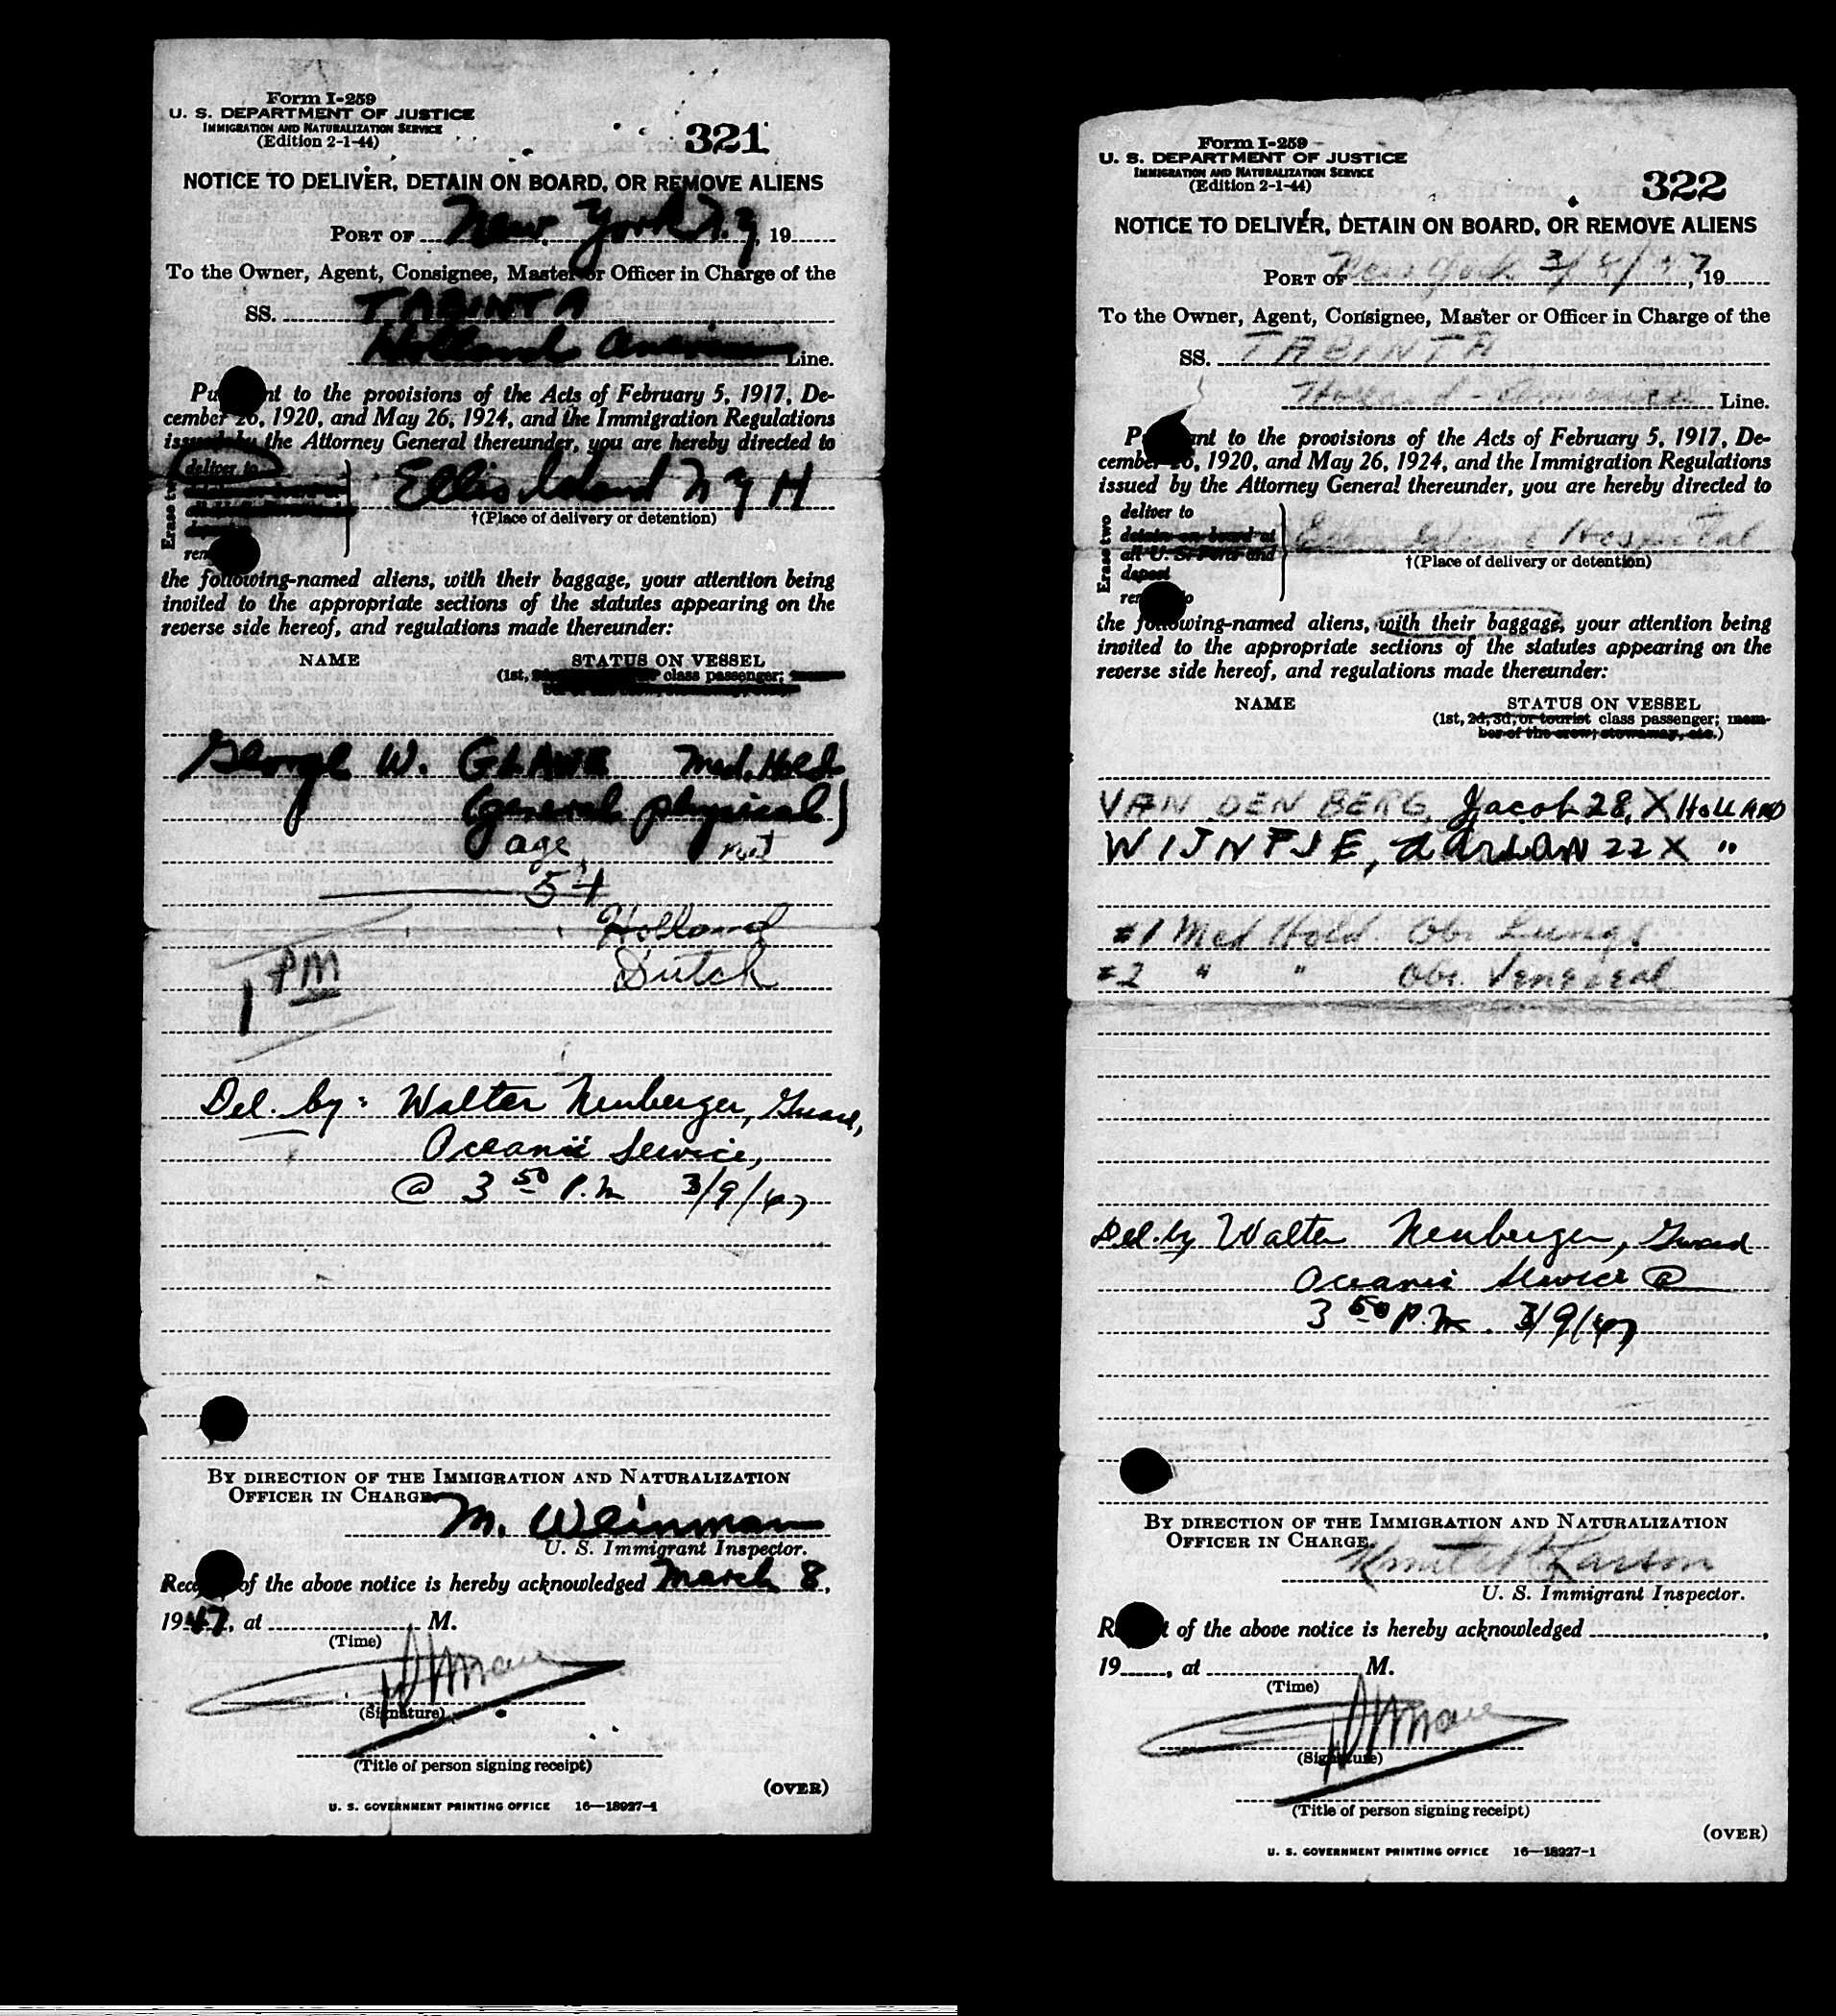 Form I-259
U. S. DEPARTMENT OF JUSTICE
IMMIGRATION AND NATURALIZATION SERVICE
(Edition 2-1-44)
321
NOTICE TO DELIVER, DETAIN ON BOARD, OR REMOVE ALIENS
PORT OF New York N.Y, 19
To the Owner, Agent, Consignee, Master or Officer in Charge of the
SS. TABINTA
Holland Line.
Pu nt to the provisions of the Acts of February 5, 1917, De-
cember 26, 1920, and May 26, 1924, and the Immigration Regulations
issued by the Attorney General thereunder, you are hereby directed to
Erase two
deliver to
Ellis Island N Y H
†(Place of delivery or detention)
the following-named aliens, with their baggage, your attention being
invited to the appropriate sections of the statutes appearing on the
reverse side hereof, and regulations made thereunder:
NAME STATUS ON VESSEL
(1st, class passenger;
George W. Med. Hold
(general physical)
age
54
Holland
Dutch
1 PM
Del. by: Walter Neuberger, Guard,
Oceanic Service,
@ 3 50 P.M 3/9/47
BY DIRECTION OF THE IMMIGRATION AND NATURALIZATION
OFFICER IN CHARGE
M. Weinman
U. S. Immigrant Inspector.
Rece of the above notice is hereby acknowledged March 8,
1947, at M.
(Time)
(Signature)
(Title of person signing receipt)
(OVER)
U. S. GOVERNMENT PRINTING OFFICE 16—18927-1
Form I-259
U. S. DEPARTMENT OF JUSTICE
IMMIGRATION AND NATURALIZATION SERVICE
(Edition 2-1-44)
322
NOTICE TO DELIVER, DETAIN ON BOARD, OR REMOVE ALIENS
PORT OF New York 3/8/47, 19
To the Owner, Agent, Consignee, Master or Officer in Charge of the
SS. TABINTA
Holland-America Line.
P ant to the provisions of the Acts of February 5, 1917, De-
cember 26, 1920, and May 26, 1924, and the Immigration Regulations
issued by the Attorney General thereunder, you are hereby directed to
Erase two
deliver to
detain on board at
all U. S. Ports and
deport
Ellis Island Hospital
†(Place of delivery or detention)
the following-named aliens, with their baggage, your attention being
invited to the appropriate sections of the statutes appearing on the
reverse side hereof, and regulations made thereunder:
NAME STATUS ON VESSEL
(1st, 2d, 3d, or tourist class passenger; mem-
ber of the crew; stowaway, etc.)
VAN DEN BERG, Jacob 28, X HOLLAND
WIJNTJE, 22 X "
#1 Med Hold Obs Lungs
#2 " " Obs. Venereal
Del. by Walter Neuberger, Guard
Oceanic Service @
3 50 P.M. 3/9/47
BY DIRECTION OF THE IMMIGRATION AND NATURALIZATION
OFFICER IN CHARGE
Larson
U. S. Immigrant Inspector.
R t of the above notice is hereby acknowledged ,
19 , at M.
(Time)
(Signature)
(Title of person signing receipt)
(OVER)
U. S. GOVERNMENT PRINTING OFFICE 16—18927-1